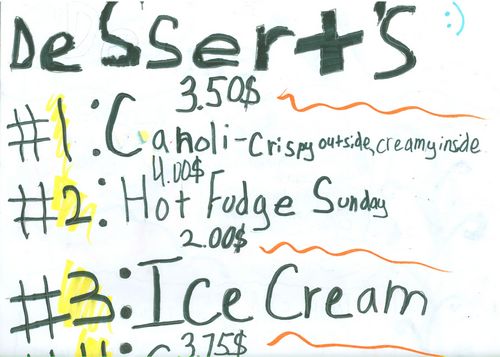 DeSSert'S :)
3.50$
#1: Canoli-Crispy outside, creamy inside
4.00$
#2: Hot Fudge Sunday
2.00$
#3: Ice Cream
3.75$